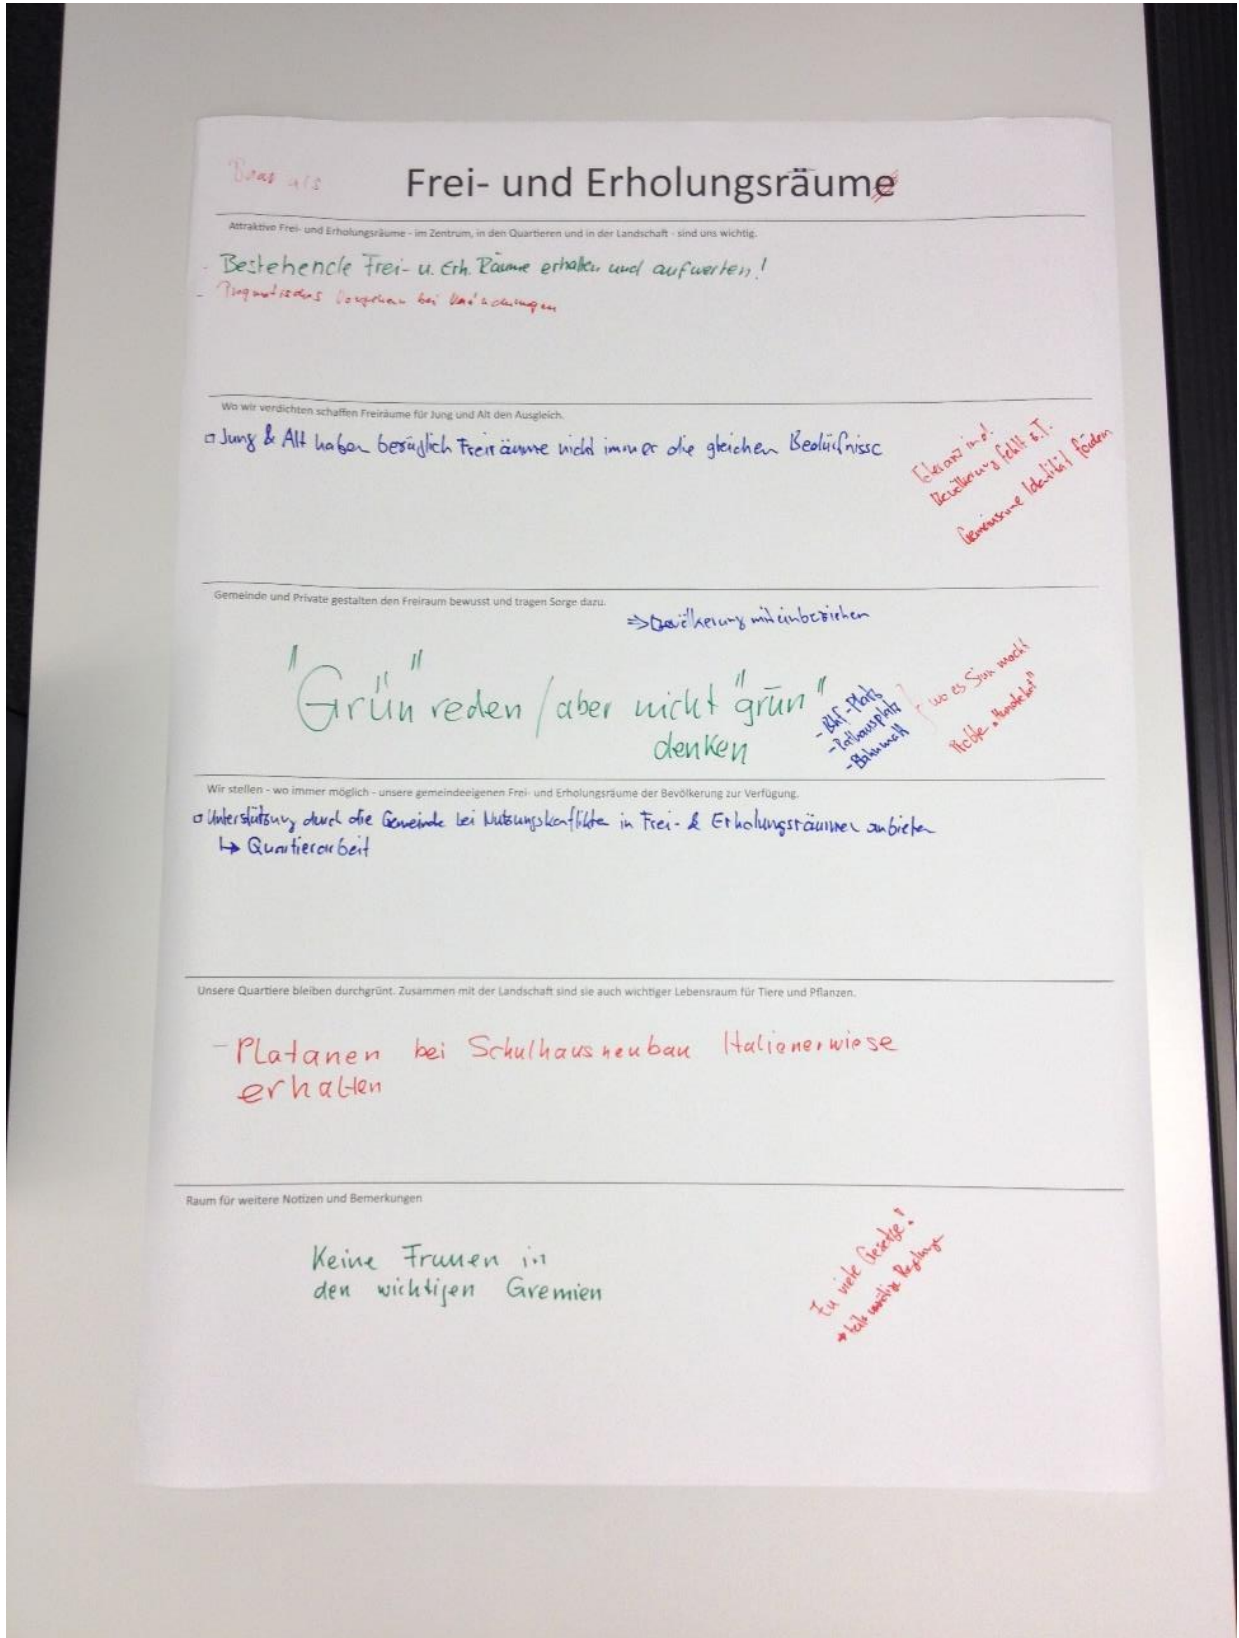 Baar als
Frei- und Erholungsräume
Attraktive Frei- und Erholungsräume - im Zentrum, in den Quartieren und in der Landschaft - sind uns wichtig.
- Bestehende Frei- u. Erh. Räume erhalten und aufwerten!
- Pragmatisches Vorgehen bei Veränderungen
Wo wir verdichten schaffen Freiräume für Jung und Alt den Ausgleich.
Jung & Alt haben bezüglich Freiräume nicht immer die gleichen Bedürfnisse
Toleranz in d.
Bevölkerung fehlt z.T.
Gemeinsame Identität fördern
Gemeinde und Private gestalten den Freiraum bewusst und tragen Sorge dazu.
⇒ Bevölkerung miteinbeziehen
"Grün" reden / aber nicht "grün"
denken
- Bhf-Platz
- Rathausplatz
- Bahnmatt
wo es Sinn macht
Wir stellen - wo immer möglich - unsere gemeindeeigenen Frei- und Erholungsräume der Bevölkerung zur Verfügung.
Unterstützung durch die Gemeinde bei Nutzungskonflikten in Frei- & Erholungsräumen anbieten
↳ Quartierarbeit
Unsere Quartiere bleiben durchgrünt. Zusammen mit der Landschaft sind sie auch wichtiger Lebensraum für Tiere und Pflanzen.
- Platanen bei Schulhausneubau Italienerwiese
erhalten
Raum für weitere Notizen und Bemerkungen
Keine Frauen in
den wichtigen Gremien
Zu viele Gesetze!